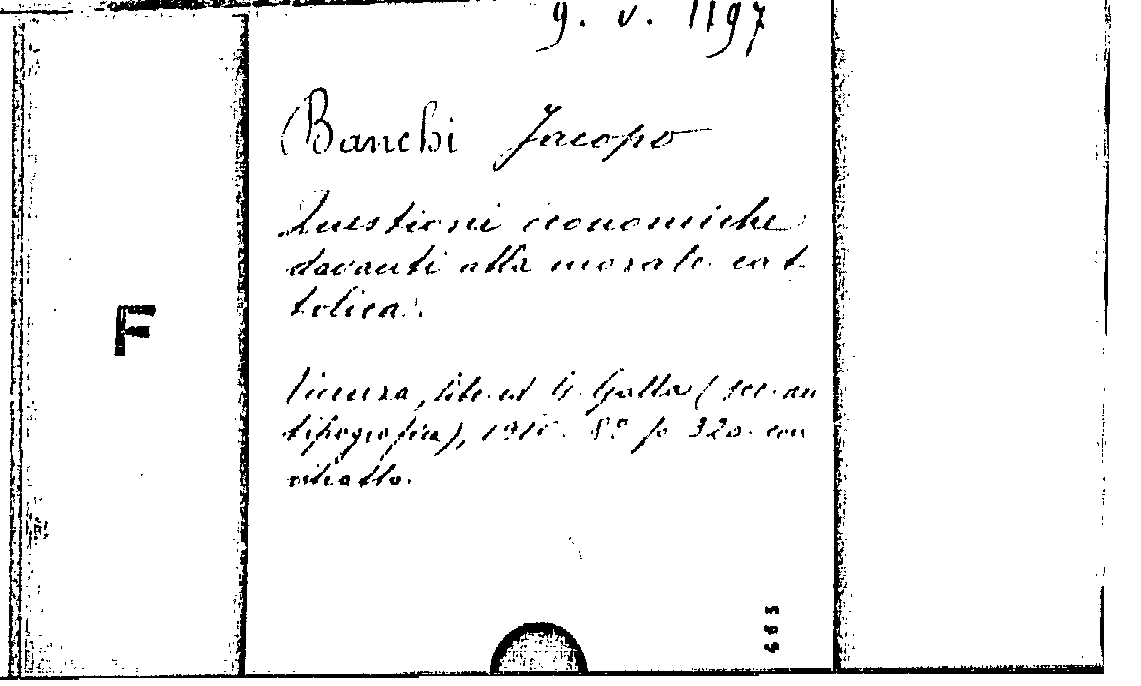 g. v. 1197
Banchi Jacopo
Questioni economiche
davanti alla morale cat-
tolica.
F
Vicenza, lib. ed G. Galla (
tipografica), 8º p. 320. con
ritratto.